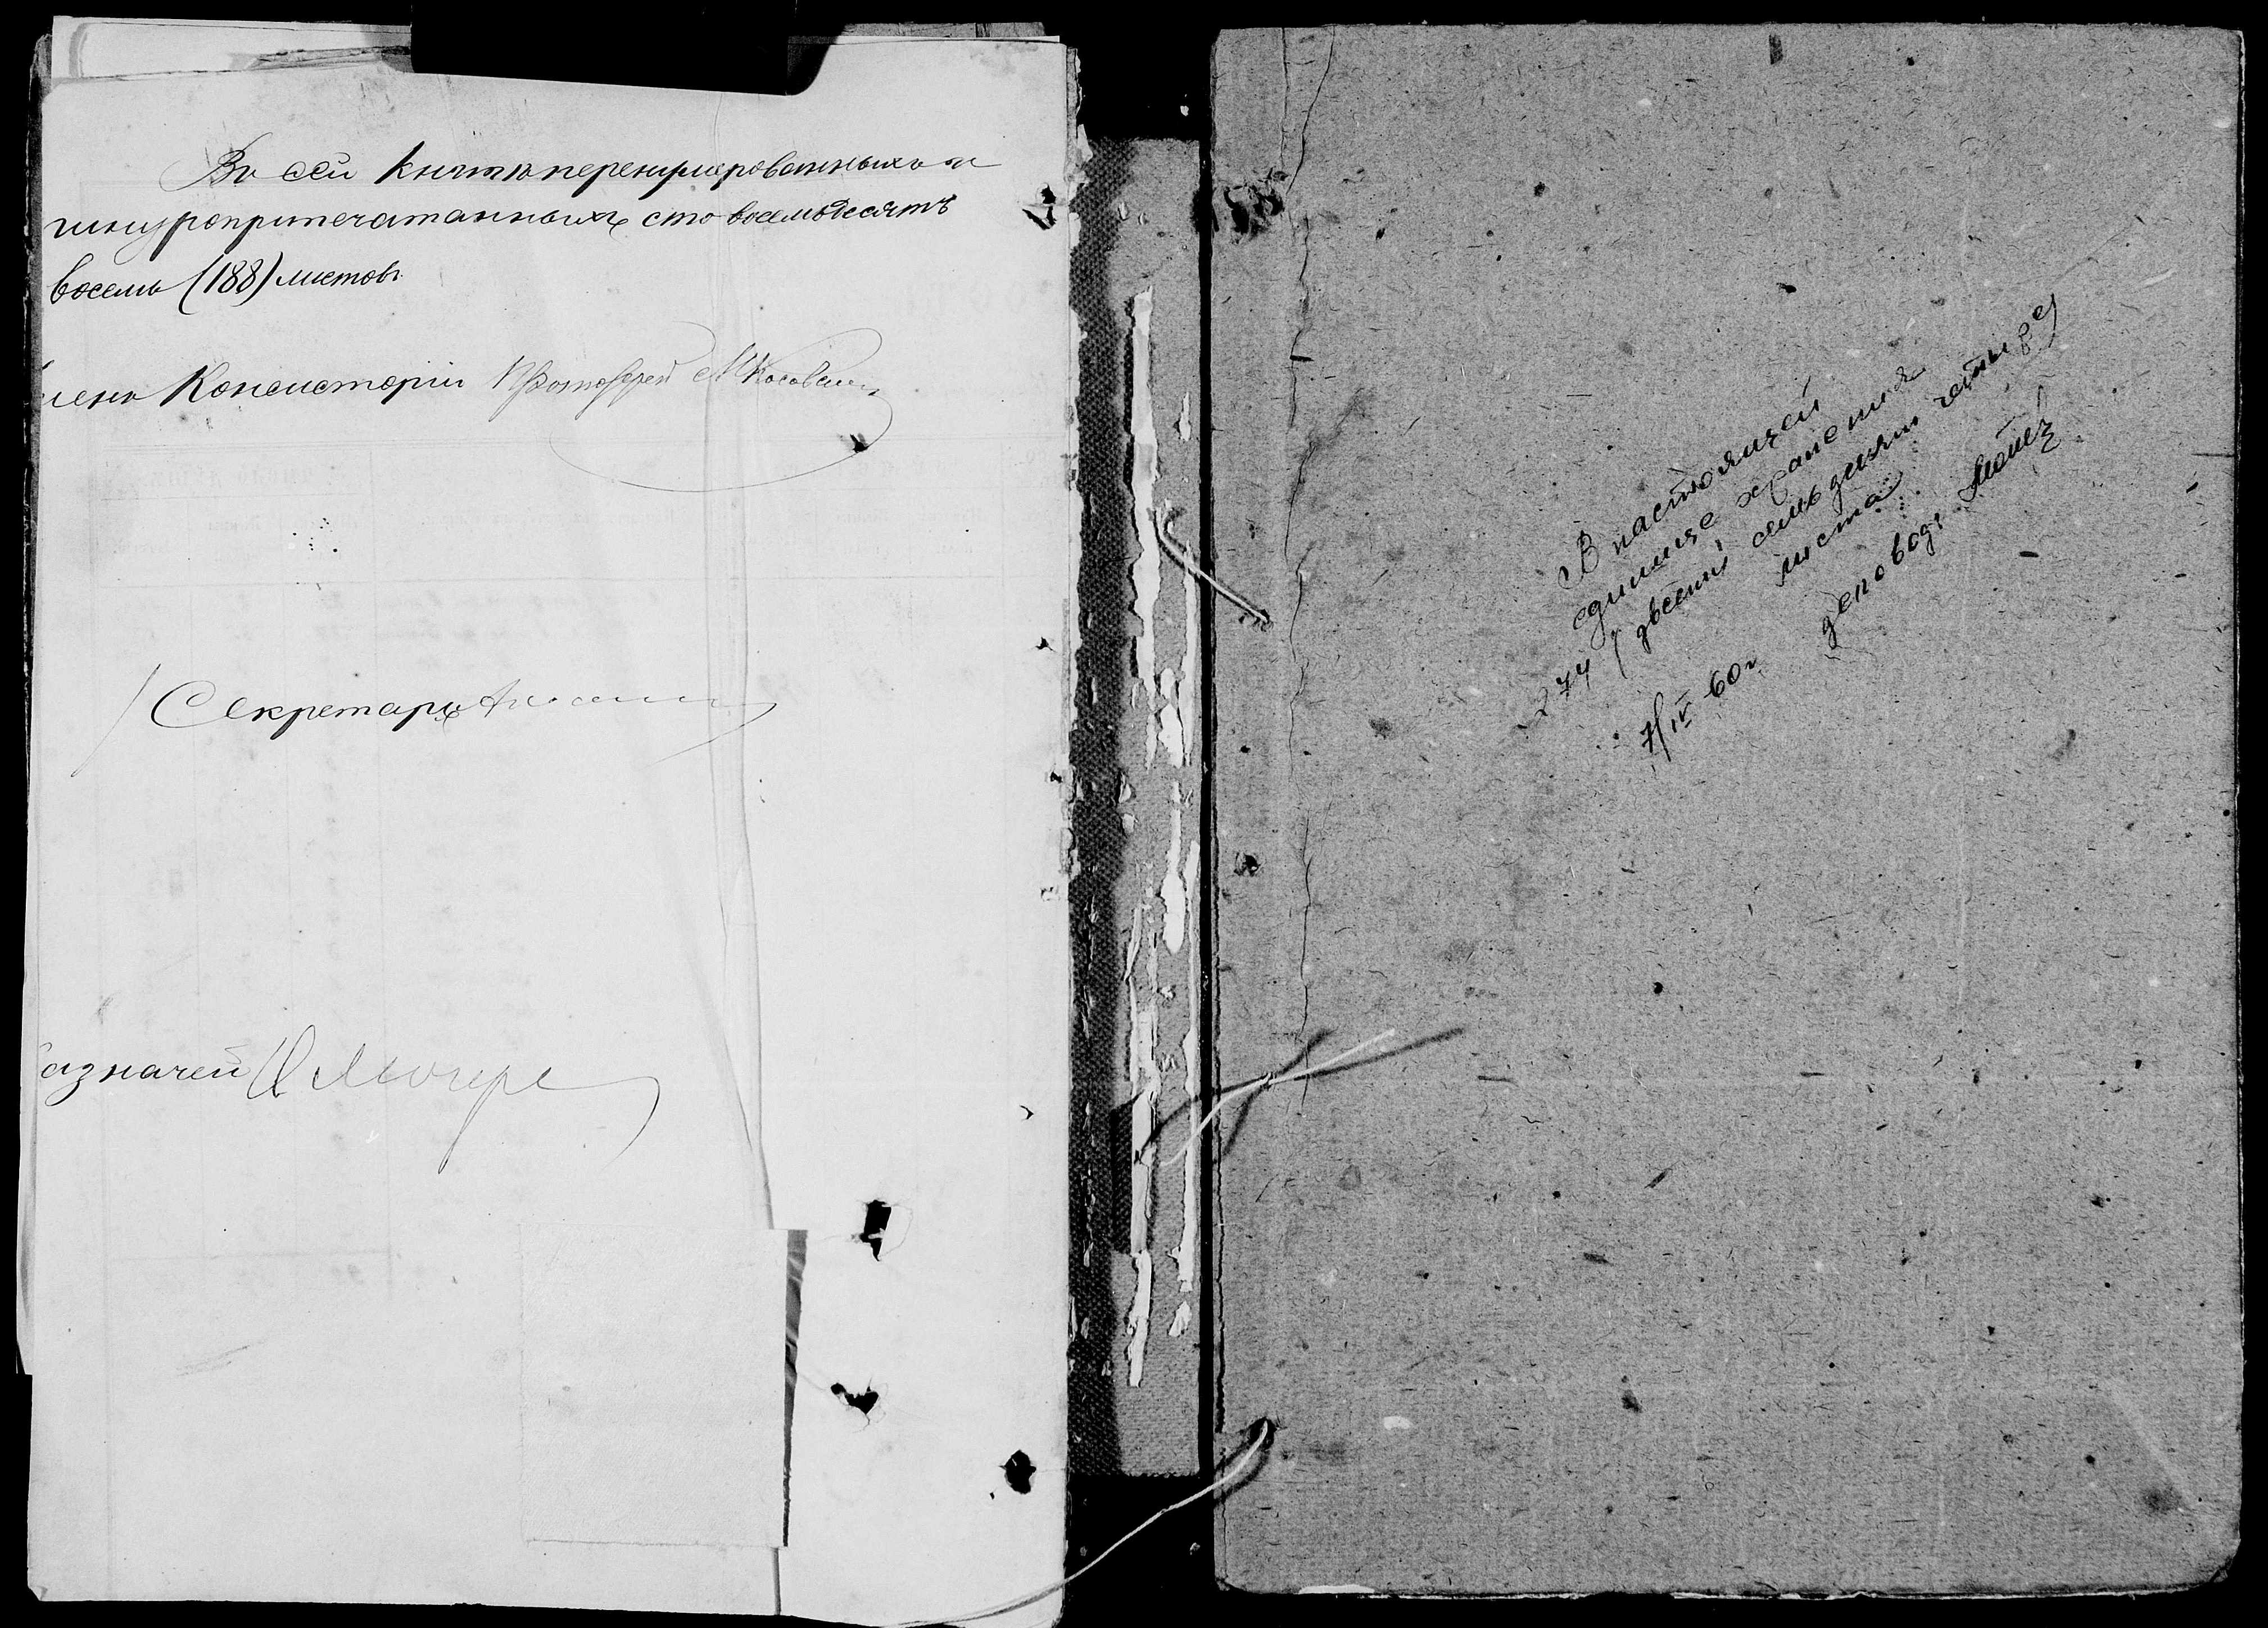 Въ сей книгѣ перенумерованныхъ и
шнуроприпечатанныхъ сто восемьдесятъ
восемь (188) листовъ.
членъ Консисторіи Протоіерей
Секретарь
азначей
В настоящей
единице хранения
274 (двести семьдесят четыре)
листа
7/IV 60 г деловод.